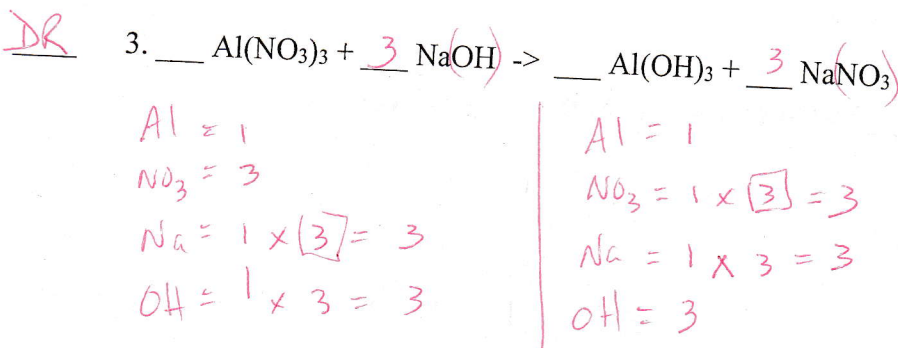 DR 3. ___ Al(NO₃)₃ + 3 Na(OH) -> ___ Al(OH)₃ + 3 Na(NO₃)
Al = 1
NO₃ = 3
Na = 1 x [3] = 3
OH = 1 x 3 = 3
Al = 1
NO₃ = 1 x [3] = 3
Na = 1 x 3 = 3
OH = 3